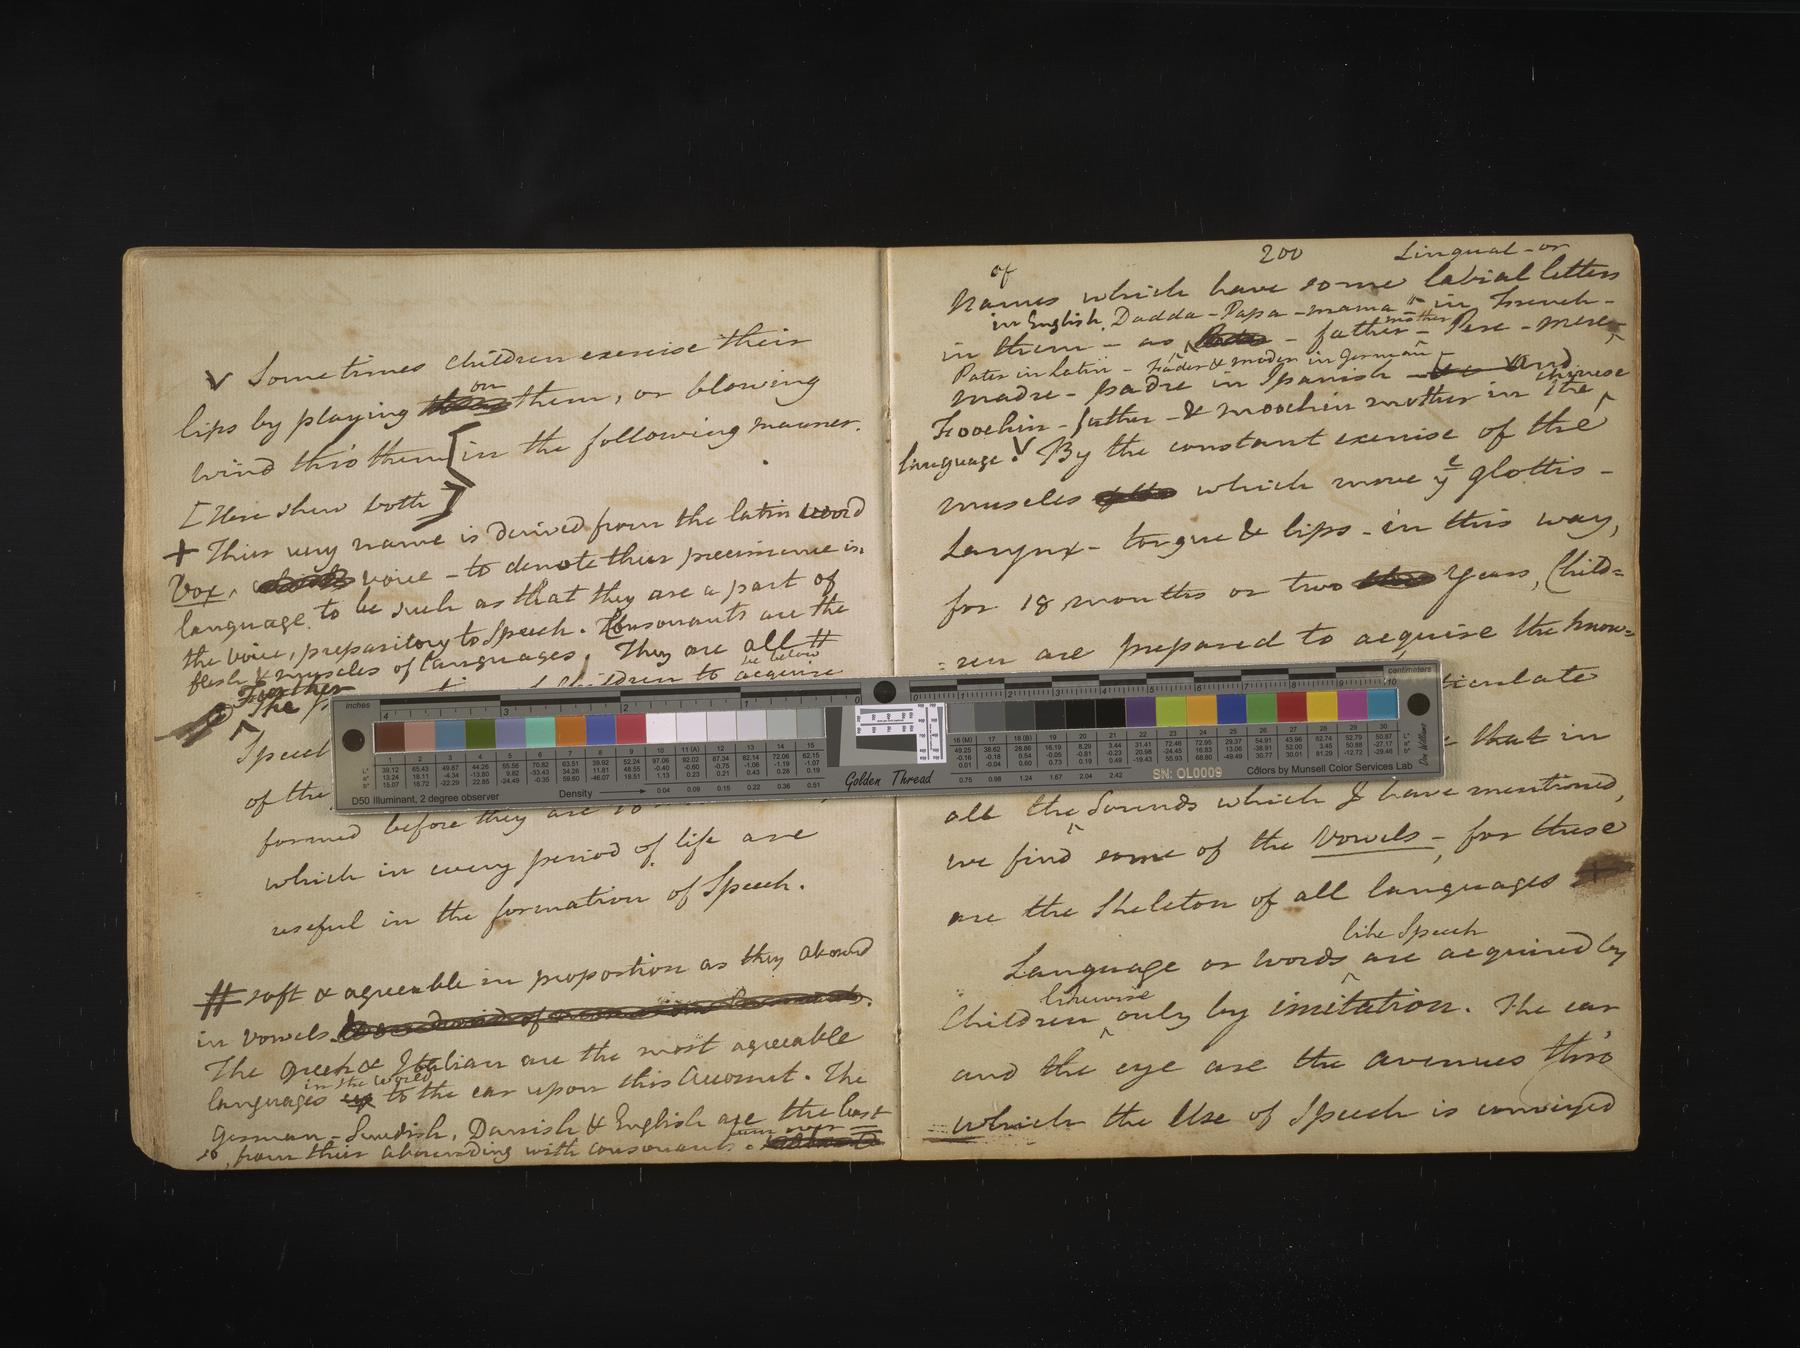 V Sometimes children exercise their
lips by playing on them, or blowing
wind thro' them [in the following manner.
[Here shew both]
+ Their very name is derived from the latin word
Vox, voice - to denote their preeminence in
language to be such as that they are a part of
the voice, preparitory to Speech. Consonants are the
flesh & muscles of languages. They are all #
Further children to acquire
The
Speech
of the
formed before they are
which in every period of life are
useful in the formation of Speech.
# soft & agreeable in proportion as they abound
in vowels
The Greek & Italian are the most agreeable
in the world
languages to the ear upon this Account. The
German - Swedish, Danish & English are the least
so, from their abounding with consonants. turn over =
200
Lingual - or
of
Names which have some labial letters
in English, Dadda - Papa - mama in French -
in them - as father - mother - Pere - mere
Pater in Latin - & in German
madre - padre in Spanish - And
Foochin - father - & moochin mother in the Chinese
language. V By the constant exercise of the
muscles which move ye glottis -
Larynx - tongue & lips - in this way,
for 18 months or two years, Child=
=ren are prepared to acquire the know=
ticulate
that in
all the Sounds which I have mentioned,
we find some of the Vowels -, for these
are the Skeleton of all languages +
like Speech
Language or words are acquired by
likewise
Children only by imitation. The ear
and the eye are the avenues thro'
which the Use of Speech is conveyed
inches
4 3 2 1 0
0 1 2 3 4 5 6 7 8 9 10
centimeters
1 2 3 4 5 6 7 8 9 10 11 (A) 12 13 14 15
16 (M) 17 18 (B) 19 20 21 22 23 24 25 26 27 28 29 30
D50 Illuminant, 2 degree observer
Density
0.04 0.09 0.15 0.22 0.36 0.51
Golden Thread
0.75 0.98 1.24 1.67 2.04 2.42
SN: OL0009
Colors by Munsell Color Services Lab
Don Williams